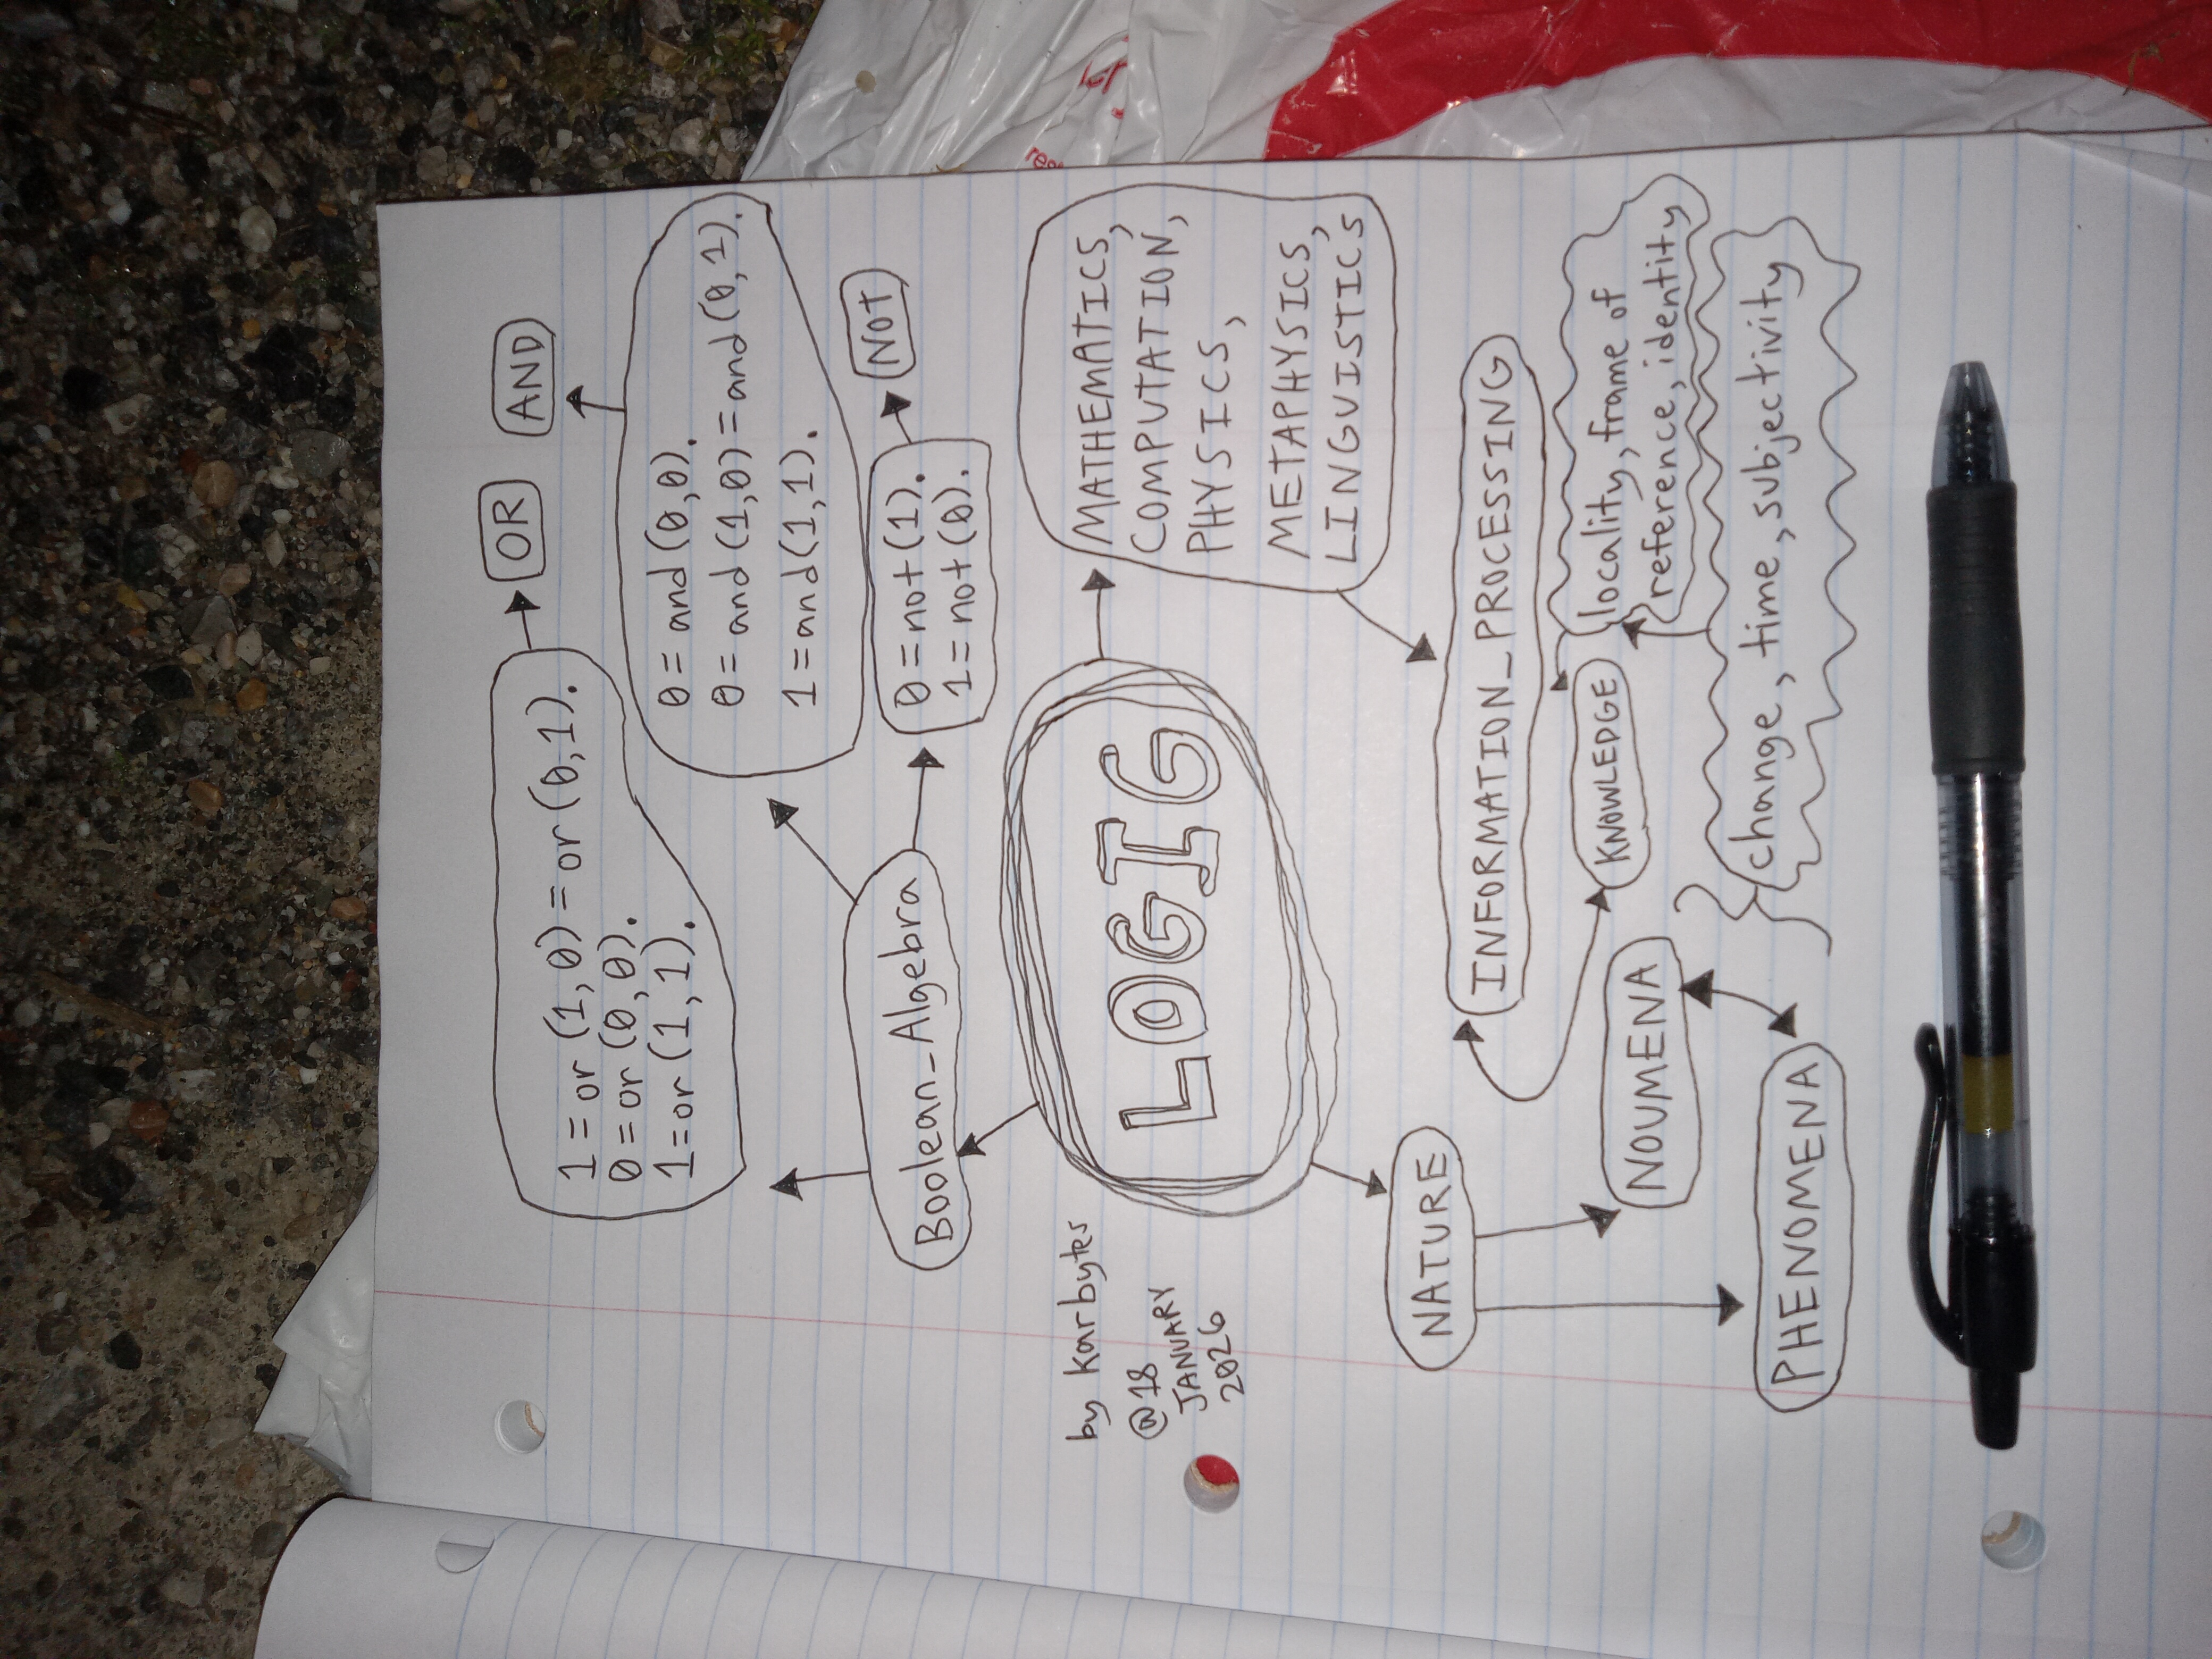 OR
AND
1=or(1,0)=or(0,1).
0=or(0,0).
1=or(1,1).
0=and(0,0).
0=and(1,0)=and(0,1).
1=and(1,1).
NOT
0=not(1).
1=not(0).
Boolean_Algebra
by Karbytes
@18
JANUARY
2026
LOGIG
MATHEMATICS,
COMPUTATION,
PHYSICS,
METAPHYSICS,
LINGUISTICS
NATURE
INFORMATION_PROCESSING
locality, frame of
reference, identity
KNOWLEDGE
NOUMENA
change, time, subjectivity
PHENOMENA